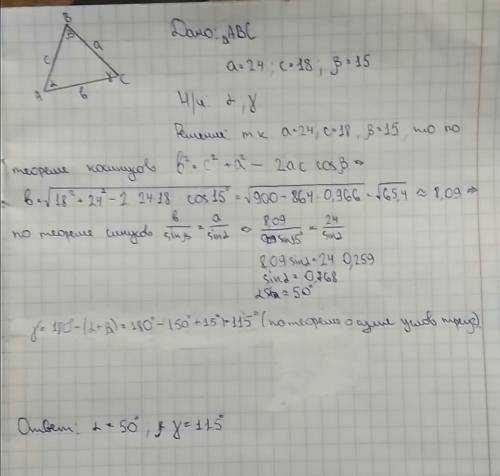 B
β
a
c
α
γ
A
b
C
Дано: △ABC
a=24; c=18; β=15
Н/и: α, γ
Решение т к a=24, c=18, β=15, то по
теореме косинусов b² = c² + a² − 2ac cosβ ⇒
b=√18² + 24² − 2 24·18 cos15° = √900 − 864 · 0,966 = √65,4 ≈ 8,09 ⇒
по теореме синусов b/sinβ = a/sinα ⇔ 8,09/sin15° = 24/sinα
8,09 sinα = 24 0,259
sinα = 0,768
α = 50°
γ = 180° − (α + β) = 180° − (50° + 15°) = 115° (по теореме о сумме углов треуг)
Ответ: α = 50°, γ = 115°